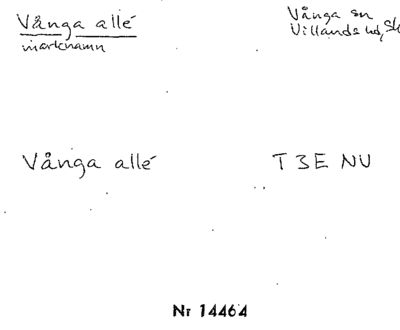 Vånga allé
marknamn
Vånga sn
Villands hd, Sk
Vånga allé
T 3E NU
Nr 14464